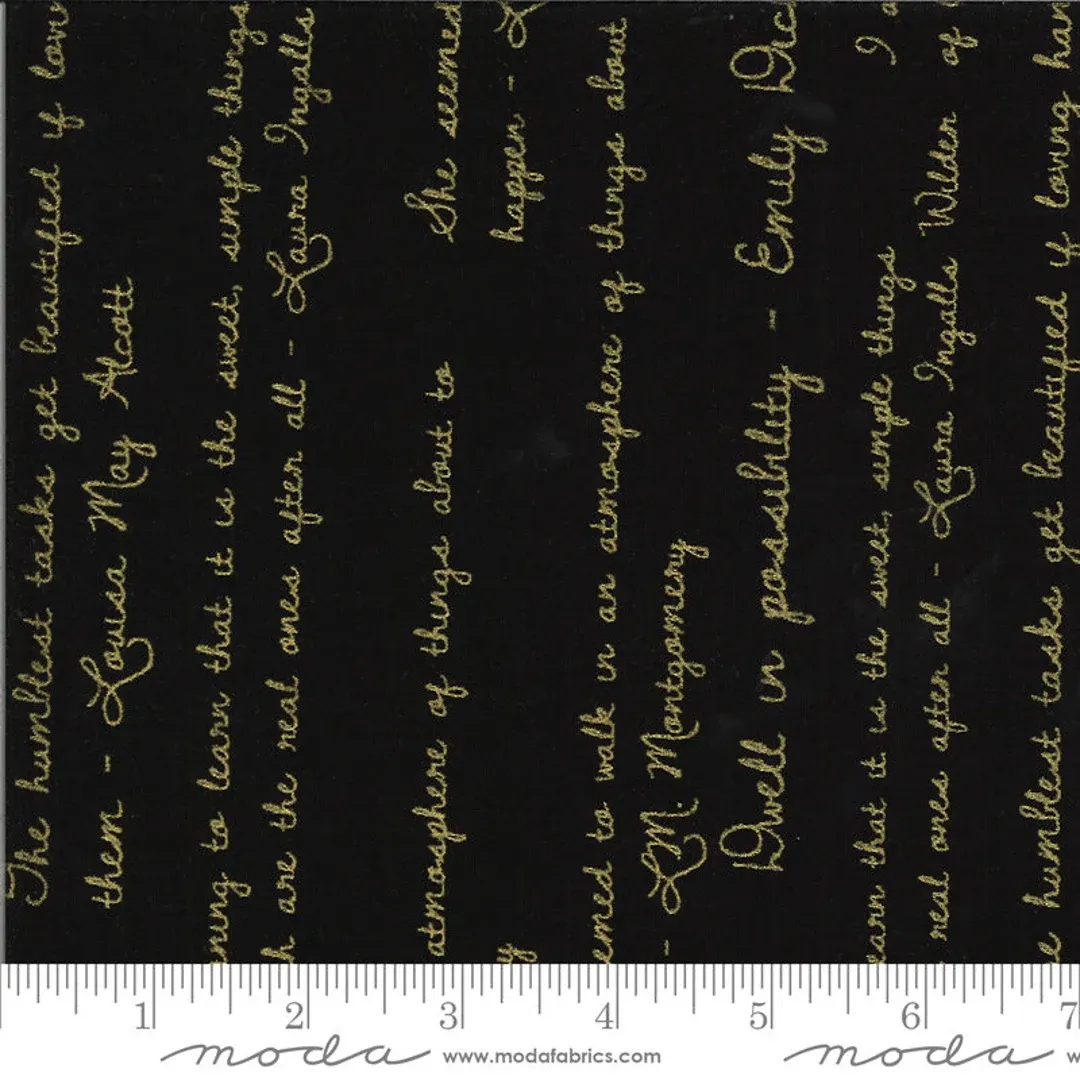 The humblest tasks get beautified if lovin
them - Louisa May Alcott
ning to learn that it is the sweet, simple things
h are the real ones after all - Laura Ingalls
atmosphere of things about to
She seemed
y
happen - L
emed to walk in an atmosphere of things about
- L.M. Montgomery
Dwell in possibility - Emily Dic
earn that it is the sweet, simple things
I a
real ones after all - Laura Ingalls Wilder
of
e humblest tasks get beautified if loving han
1 2 3 4 5 6 7
moda www.modafabrics.com moda w